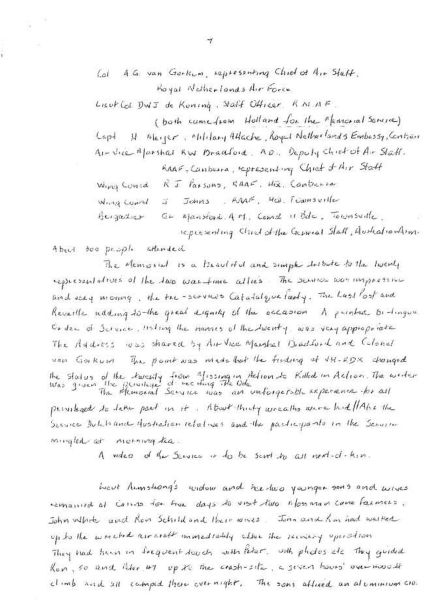 7
Col A.G. van Gorkum, representing Chief of Air Staff,
Royal Netherlands Air Force
Lieut Col DWJ de Koning, Staff Officer R N A F
(both came from Holland for the Memorial Service)
Capt H Meijer, Military Attache, Royal Netherlands Embassy, Canberra
Air Vice Marshal RW Bradford, A.O., Deputy Chief of Air Staff,
RAAF, Canberra, representing Chief of Air Staff
Wing Comd R J Parsons, RAAF, HQ. Canberra
Wing Comd J Johns, RAAF, HQ. Townsville
Brigadier Mansford, A.M., Comd 11 Bde, Townsville,
representing Chief of the General Staff, Australian Arm.
About 300 people attended
The Memorial is a beautiful and simple tribute to the twenty
representatives of the two war-time allies. The service was impressive
and very moving, the tri-services Catafalque Party, The Last Post and
Reveille adding to the great dignity of the occasion. A printed Bi-lingual
Order of Service, listing the names of the twenty, was very appropriate
The Address was shared by Air Vice Marshal Bradford and Colonel
van Gorkum. The point was made that the finding of VH-RDX changed
the status of the twenty from Missing in Action to Killed in Action. The writer
was given the privilege of reciting The Ode
The Memorial Service was an unforgettable experience for all
privileged to take part in it. About thirty wreaths were laid. After the
Service Dutch and Australian relatives and the participants in the Service
mingled at morning tea.
A video of the Service is to be sent to all next-of-kin.
Lieut Armstrong's widow and her two younger sons and wives
remained at Cairns for five days to visit two Mossman cane farmers,
John White and Ron Schild and their wives. John and Ron had walked
up to the wrecked aircraft immediately after the recovery operation
They had been in frequent touch with Peter, with photos etc They guided
Ron, so and Peter up to the crash-site, a seven hours' overmoutt
climb and all camped there overnight. The sons affixed an aluminium cro.